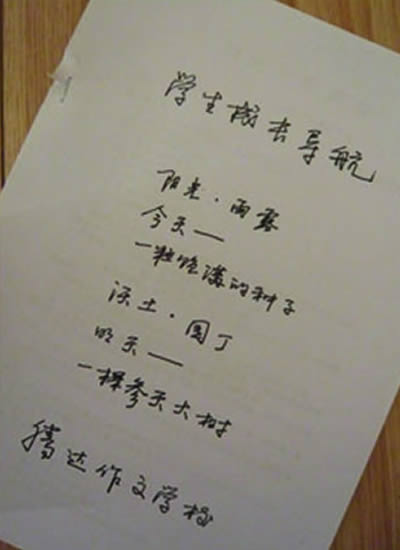 学生成长导航
阳光·雨露
今天——
一粒饱满的种子
沃土·园丁
明天——
一棵参天大树
腾达作文学校